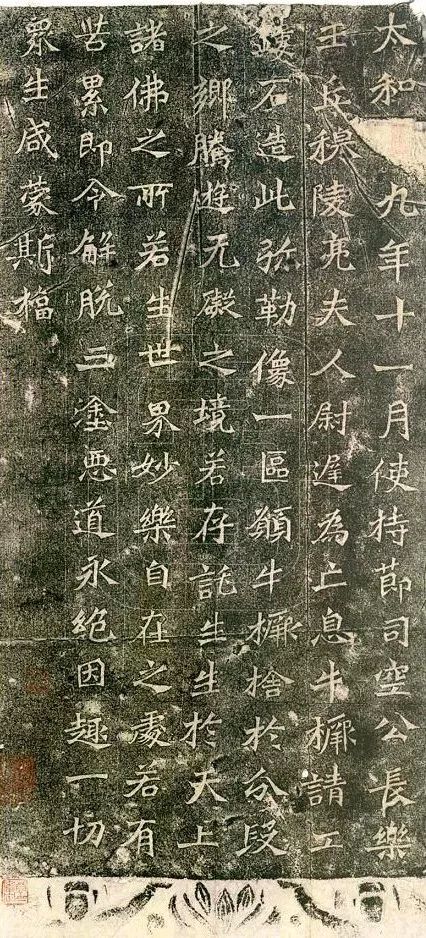 太和九年十一月使持節司空公長樂
王丘穆陵亮夫人尉遲為亡息牛橛請工
石造此弥勒像一區願牛橛捨於分段
之鄉騰遊无礙之境若存託生生於天上
諸佛之所若生世界妙樂自在之處若有
苦累即令解脫三塗惡道永絕因趣一切
眾生咸蒙斯福